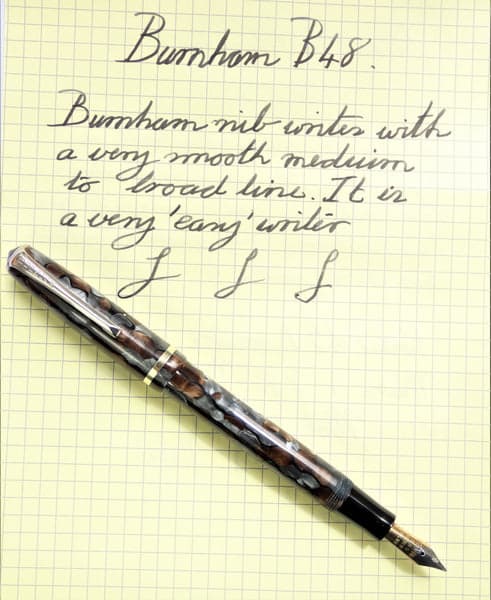 Burnham B48.
Burnham nib writes with
a very smooth medium
to broad line. It is
a very 'easy' writer